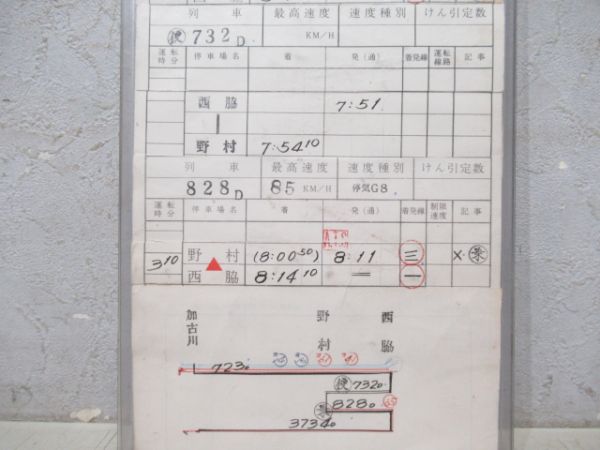 西 脇
列 車 最高速度 速度種別 けん引定数
732D KM/H
運転時分 停車場名 着 発(通) 着発線 運転線路 記事
西 脇 7:51
野 村 7:54 10
列 車 最高速度 速度種別 けん引定数
828D 85 KM/H 停気G8
運転時分 停車場名 着 発(通) 着発線 制限速度 記事
3 10 野 村 (8:00 50) 8:11 三 ×
西 脇 8:14 10 = 一
加古川 野村 西脇
723D
732D
828D
3734D